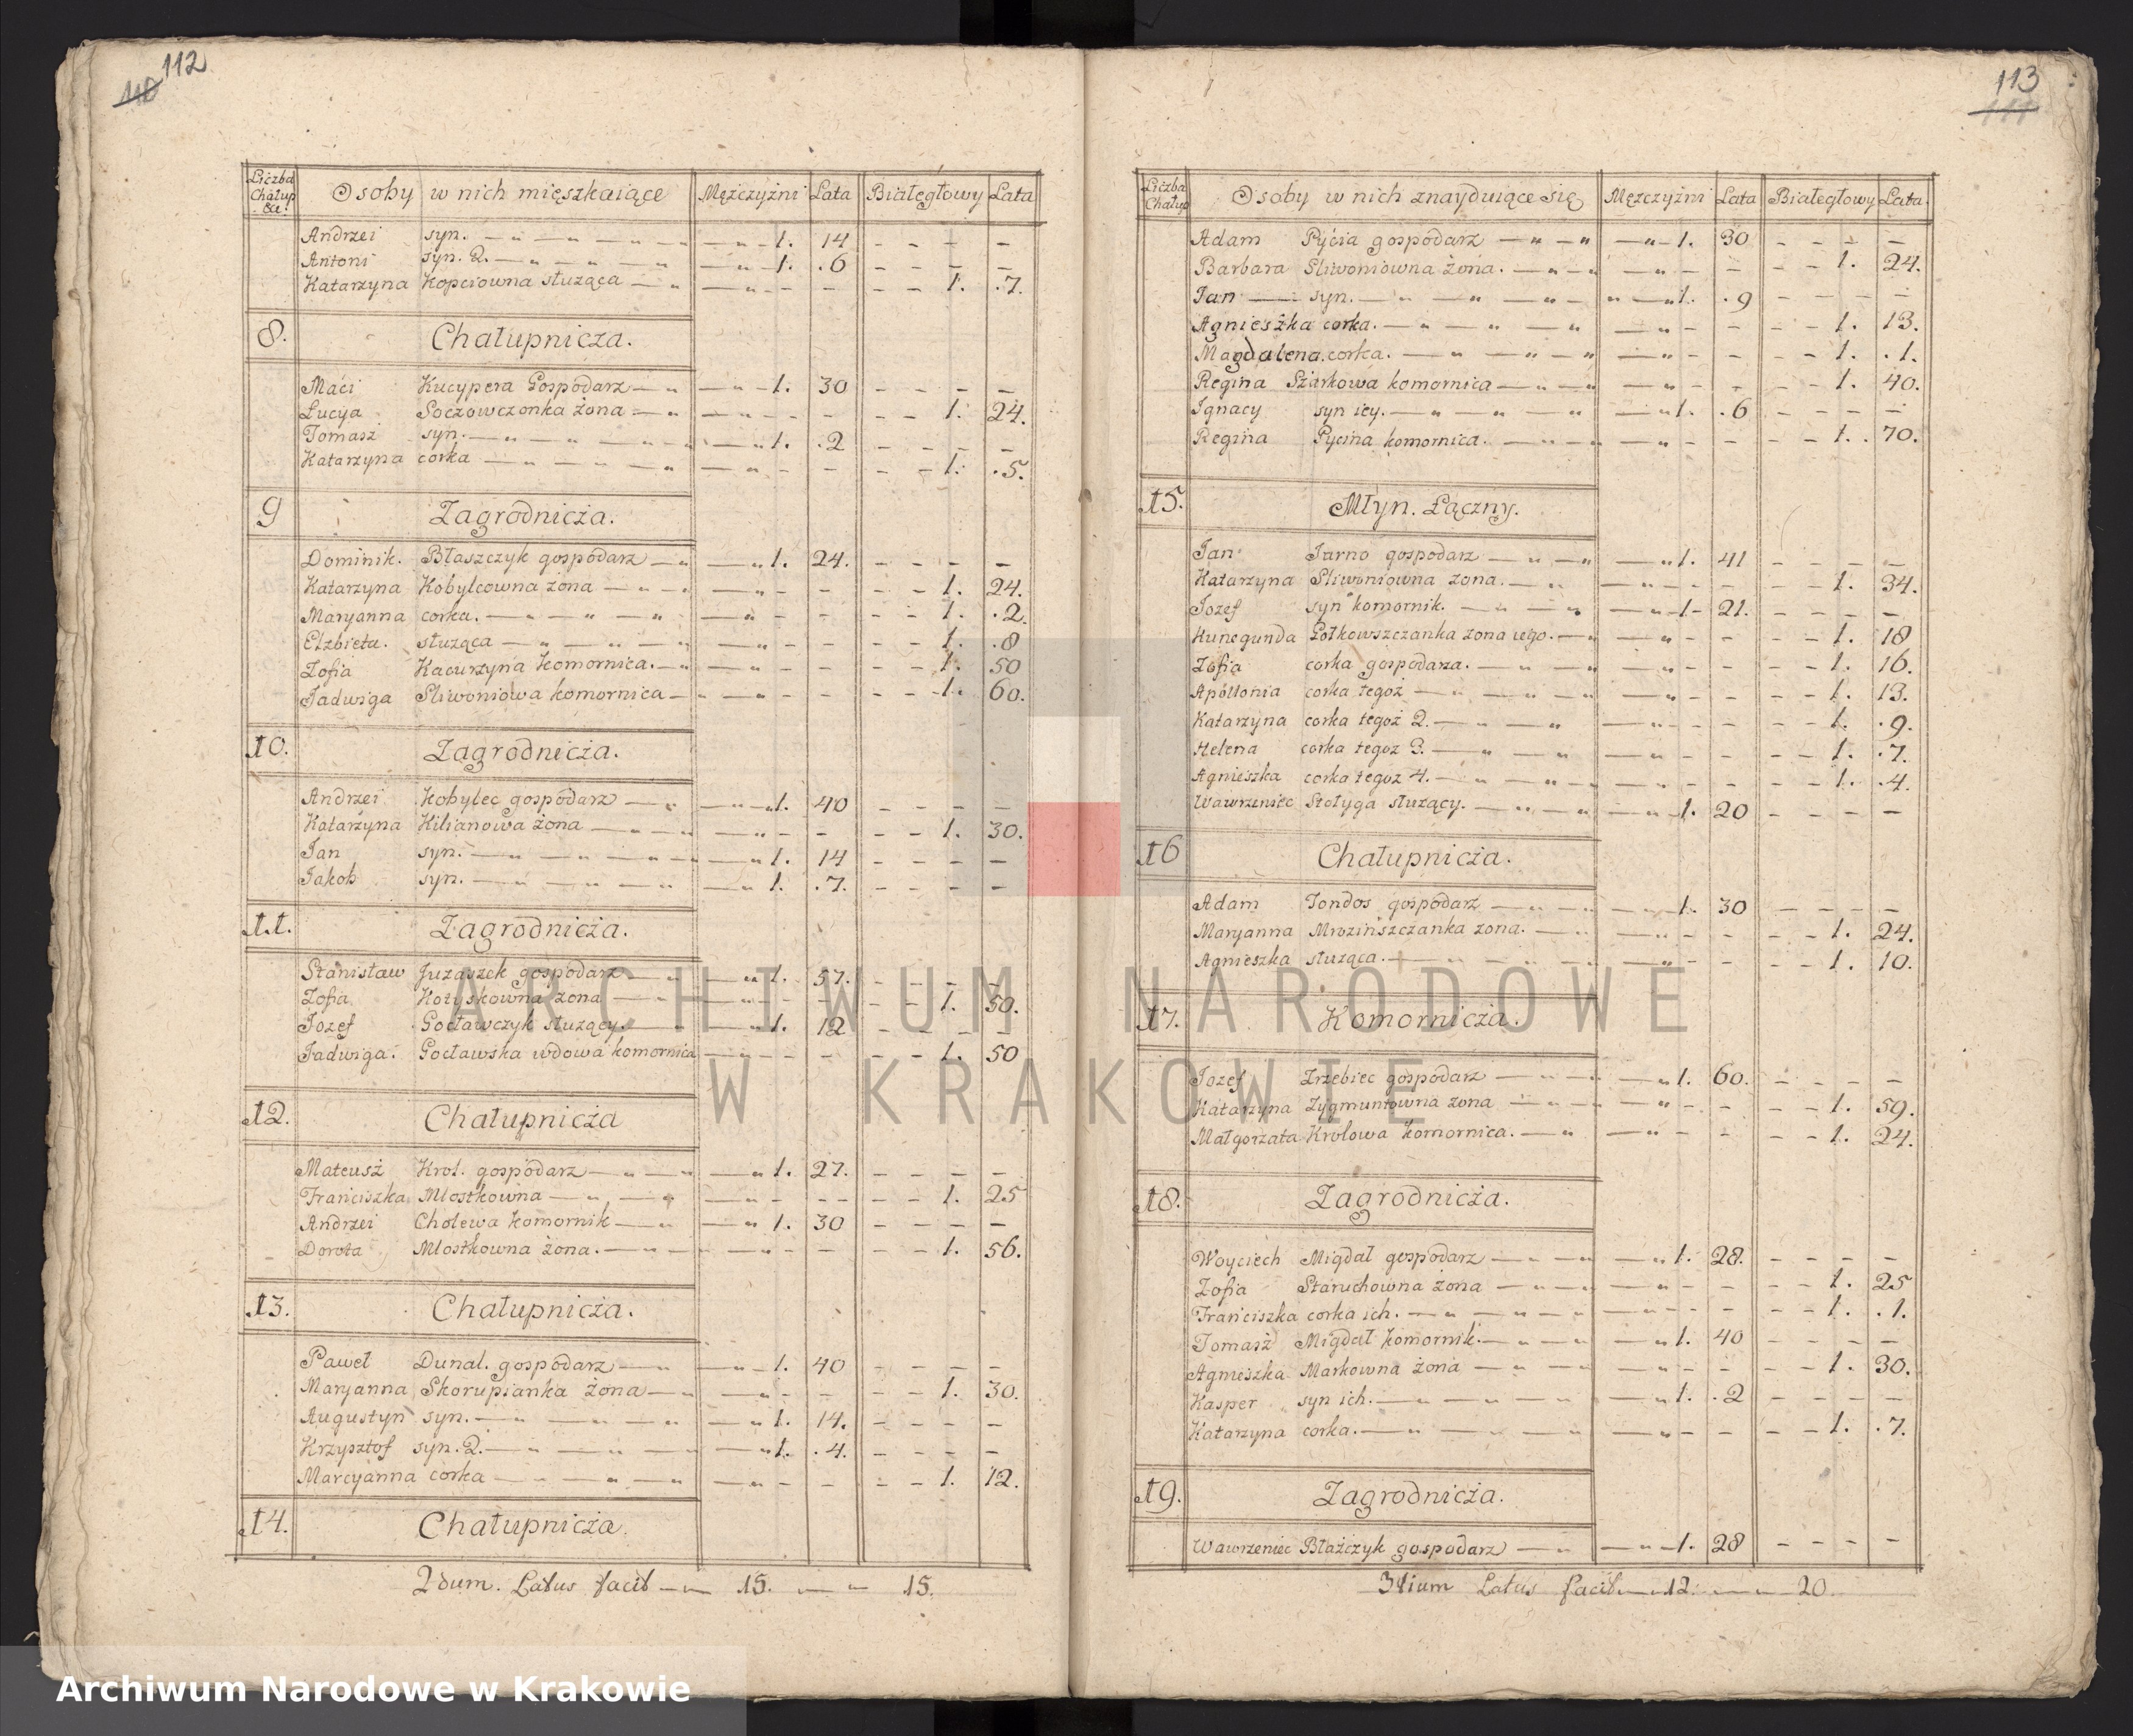 112
110
Liczba Chałup &a. Osoby w nich mięszkaiące Mężczyźni Lata Białegłowy Lata
Andrzei syn. 1. 14
Antoni syn. 2. 1. .6
Katarzyna Kopciowna służąca 1. .7.
8. Chałupnicza.
Maci Kucypera Gospodarz 1. 30
Łucya Soczowczonka żona 1. 24.
Tomasz syn. 1. .2
Katarzyna corka 1. .5.
9 Zagrodnicza.
Dominik. Błaszczyk gospodarz 1. 24.
Katarzyna Kobylcowna żona 1. 24.
Maryanna corka. 1. .2.
Elzbieta. służąca 1. .8
Zofia Kacurzyna komornica. 1. 50
Jadwiga Sliwoniowa komornica 1. 60.
10. Zagrodnicza.
Andrzei Kobylec gospodarz 1. 40
Katarzyna Kilianowa żona 1. 30.
Jan syn. 1. 14
Jakob syn. 1. .7.
11. Zagrodnicza.
Stanisław Juzaszek gospodarz 1. 57.
Zofia Kozyskowna zona 1. 50.
Jozef Gocławczyk służący. 1. 12
Jadwiga. Gocławska wdowa komornica 1. 50
12. Chałupnicza
Mateusz Krol. gospodarz 1. 27.
Franciszka Mlostkowna 1. 25
Andrzei Cholewa komornik 1. 30
Dorota Mlostkowna żona. 1. 56.
13. Chałupnicza.
Paweł Dunal. gospodarz 1. 40
Maryanna Skorupianka żona 1. 30.
Augustyn syn. 1. 14.
Krzysztof syn. 2. 1. .4.
Marcyanna corka 1. 12.
14. Chałupnicza.
2dum. Latus facit 15. 15.
113
111
Liczba Chałup Osoby w nich znayduiące się Mężczyźni Lata Białegłowy Lata.
Adam Pycia gospodarz 1. 30
Barbara Sliwoniowna żona. 1. 24.
Jan syn. 1. .9
Agnieszka corka. 1. 13.
Magdalena. corka. 1. .1.
Regina Szarkowa komornica 1. 40.
Ignacy syn iey. 1. .6
Regina Pycina komornica. 1. 70.
15. Młyn. Łączny.
Jan Jarno gospodarz 1. 41
Katarzyna Sliwoniowna zona. 1. 34.
Jozef syn komornik. 1. 21.
Kunegunda Gołkowszczanka zona iego. 1. 18
Zofia corka gospodarza. 1. 16.
Apollonia corka tegoż 1. 13.
Katarzyna corka tegoż 2. 1. .9.
Helena corka tegoz 3. 1. .7.
Agnieszka corka tegoz 4. 1. .4.
Wawrzeniec Stołyga służący. 1. 20
16 Chałupnicza.
Adam Tondos gospodarz 1. 30
Maryanna Mrozinszczanka zona. 1. 24.
Agnieszka służąca. 1. 10.
17. Komornicza.
Jozef Zrzebiec gospodarz 1. 60.
Katarzyna Zygmuntowna zona 1. 59.
Małgorzata Krolowa komornica. 1. 24.
18. Zagrodnicza.
Woyciech Migdał gospodarz 1. 28.
Zofia Staruchowna żona 1. 25
Franciszka corka ich. 1. .1.
Tomasz Migdał komornik. 1. 40
Agnieszka Markowna żona 1. 30.
Kasper syn ich. 1. .2
Katarzyna corka. 1. .7.
19. Zagrodnicza.
Wawrzeniec Błażczyk gospodarz 1. 28
3tium Latus facit 12. 20.
ARCHIWUM NARODOWE
W KRAKOWIE
Archiwum Narodowe w Krakowie